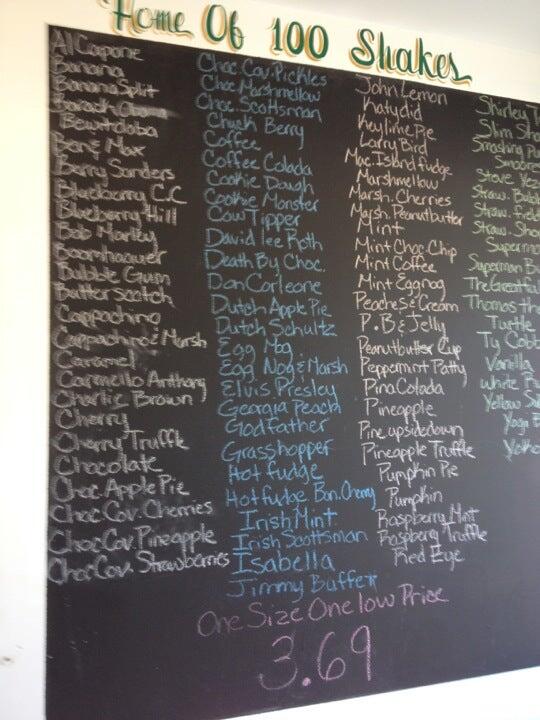 Home Of 100 Shakes
Al Capone
Banana
Banana Split
Bewitdaba
Ben & Max
Berry Sanders
Blueberry C.C
Blueberry Hill
Bob Marley
Boomhauer
Bubble Gum
Butterscotch
Cappachino
Cappachino & Marsh
Caramel
Carmello Anthony
Charlie Brown
Cherry
Cherry Truffle
Chocolate
Choc Apple Pie
Choc Cov. Cherries
Choc Cov. Pineapple
Choc Cov. Strawberries
Choc. Cov. Pickles
Choc Marshmellow
Choc. Scottsman
Chuck Berry
Coffee
Coffee Colada
Cookie Dough
Cookie Monster
Cow Tipper
David lee Roth
Death By Choc.
Don Corleone
Dutch Apple Pie
Dutch Schultz
Egg Nog
Egg Nog & Marsh
Elvis Presley
Georgia Peach
Godfather
Grasshopper
Hot fudge
Hot fudge Ban. Cherry
Irish Mint
Irish Scottsman
Isabella
Jimmy Buffet
John Lemon
Katydid
Keylime Pie
Larry Bird
Mac. Island fudge
Marshmellow
Marsh. Cherries
Marsh. Peanutbutter
Mint
Mint Choc. Chip
Mint Coffee
Mint Eggnog
Peaches & Cream
P.B & Jelly
Peanutbutter Cup
Peppermint Patty
Pina Colada
Pineapple
Pine upsidedown
Pineapple Truffle
Pumpkin Pie
Pumpkin
Raspberry Mint
Raspberry Truffle
Red Eye
Shirley T
Slim Sha
Smashing Pu
Smoore
Steve Yez
Straw. Bub
Straw. field
Straw. Sho
Superm
Superman B
The Greatful
Thomas the
Turtle
Ty Cobb
Vanilla
White
Yellow Su
One Size One low Price
3.69